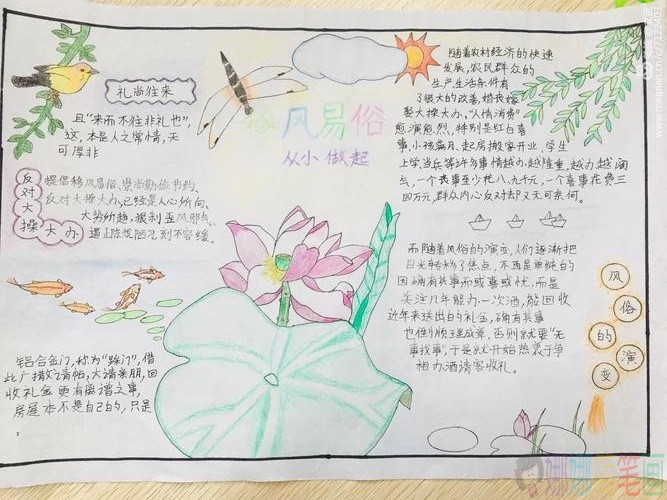 礼尚往来
且"来而不往非礼也",
这,本是人之常情,无
可厚非
移风易俗
从小做起
随着农村经济的快速
发展,农民群众的
生产生活条件有
了很大的改善,婚丧嫁
娶大操大办、"人情消费"
愈演愈烈,特别是红白喜
事、小孩满月、起房搬家开业、学生
上学、当兵等许多事情越办越隆重,越办越阔
气,一个丧事至少花八、九千元,一个喜事花费三
四万元,群众内心反对却又无可奈何。
反对大操大办
提倡移风易俗、崇尚勤俭节约、
反对大操大办,已经是人心所向、
大势所趋,狠刹歪风邪气、
遏止陈规陋习刻不容缓。
而随着风俗的演变,人们逐渐把
目光转移了焦点,不再是单纯的
因确有其事而或喜或忧,而是
关注几年能办一次酒,能回收
近年来送出的礼金,确有其事
也倒顺理成章,否则就要"无
事找事",于是就开始热衷于争
相办酒请客收礼。
风俗的演变
铝合金门,称为"踩门",借
此广撒请帖,大请亲朋,回
收礼金 更有幽谐之事,
房屋本不是自己的,只是
娜娜 笔画